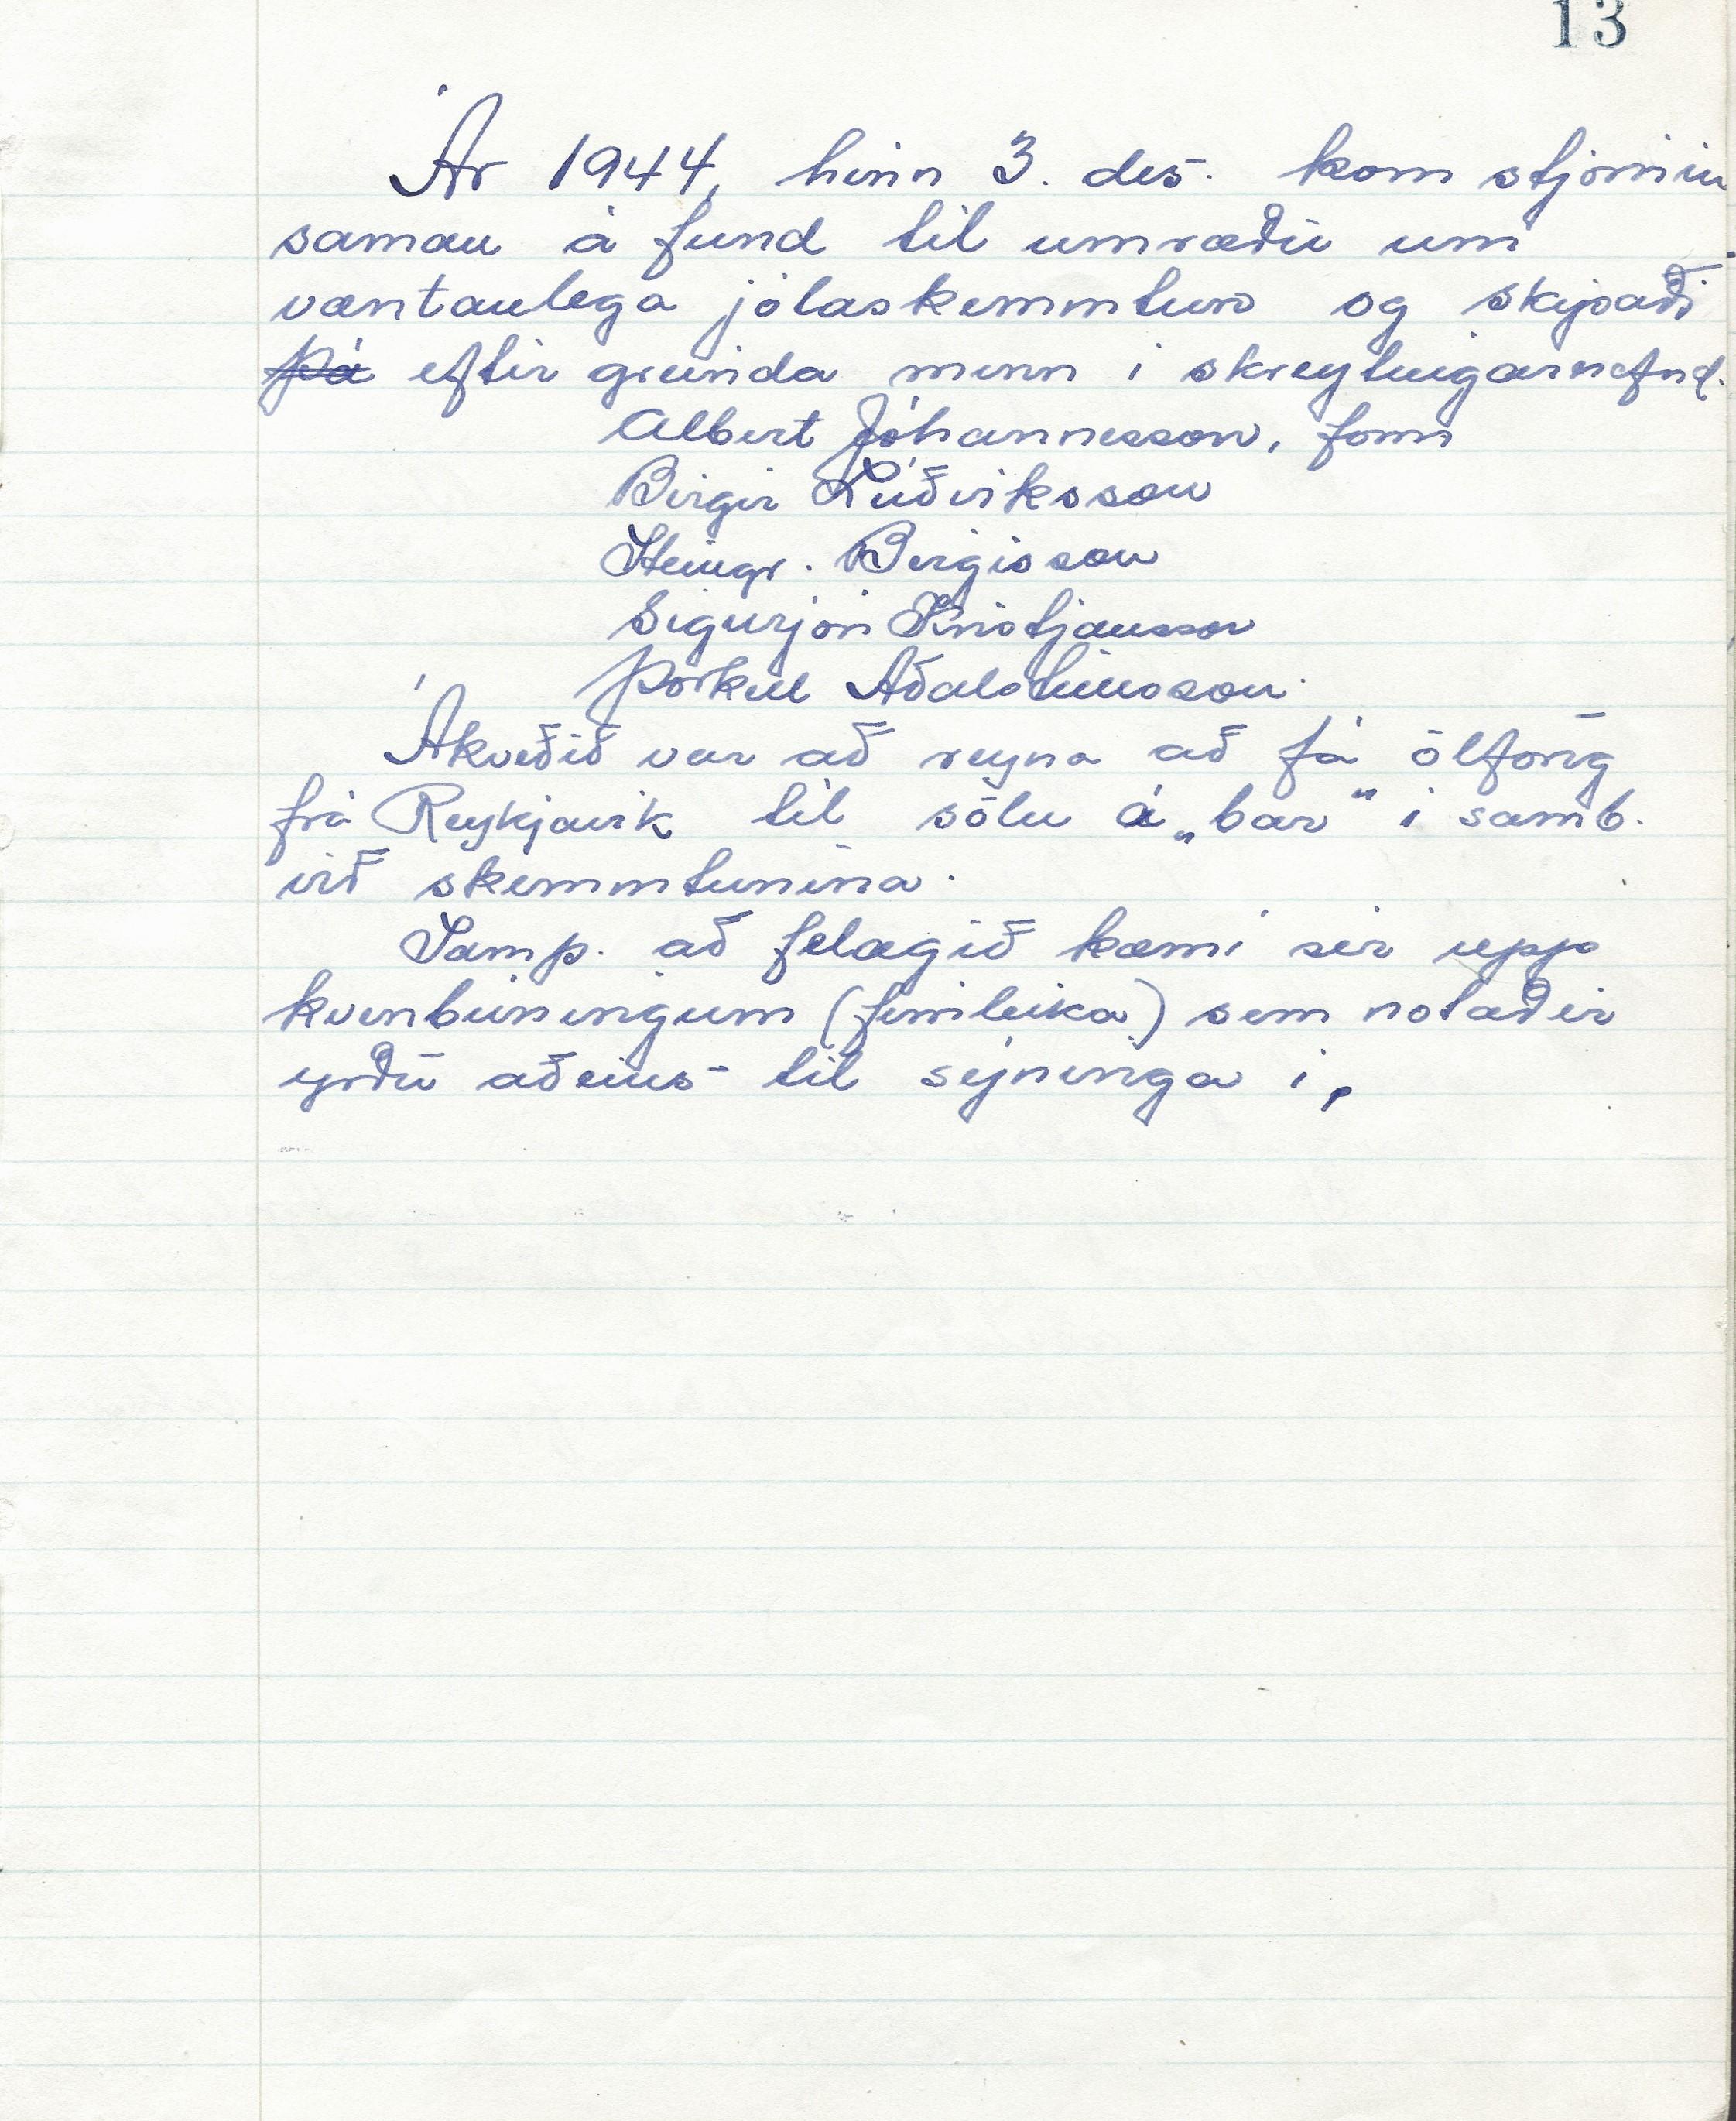 13
Ár 1944, hinn 3. des. kom stjórnin
saman á fund til umræðu um
væntanlega jólaskemmtun og skipaði
þá eftir greinda menn í skreytingarnefnd.
Albert Jóhannesson, form
Birgir Lúðviksson
Steingr. Birgisson
Sigurjón Kristjansson
Þorkell Aðalsteinsson.
Ákveðið var að reyna að fá ölföng
frá Reykjavik til sölu á „bar" í samb.
við skemmtunina.
Samþ. að félagið kæmi sér upp
kvenbúningum (fimleika) sem notaðir
yrðu aðeins til sýninga í,